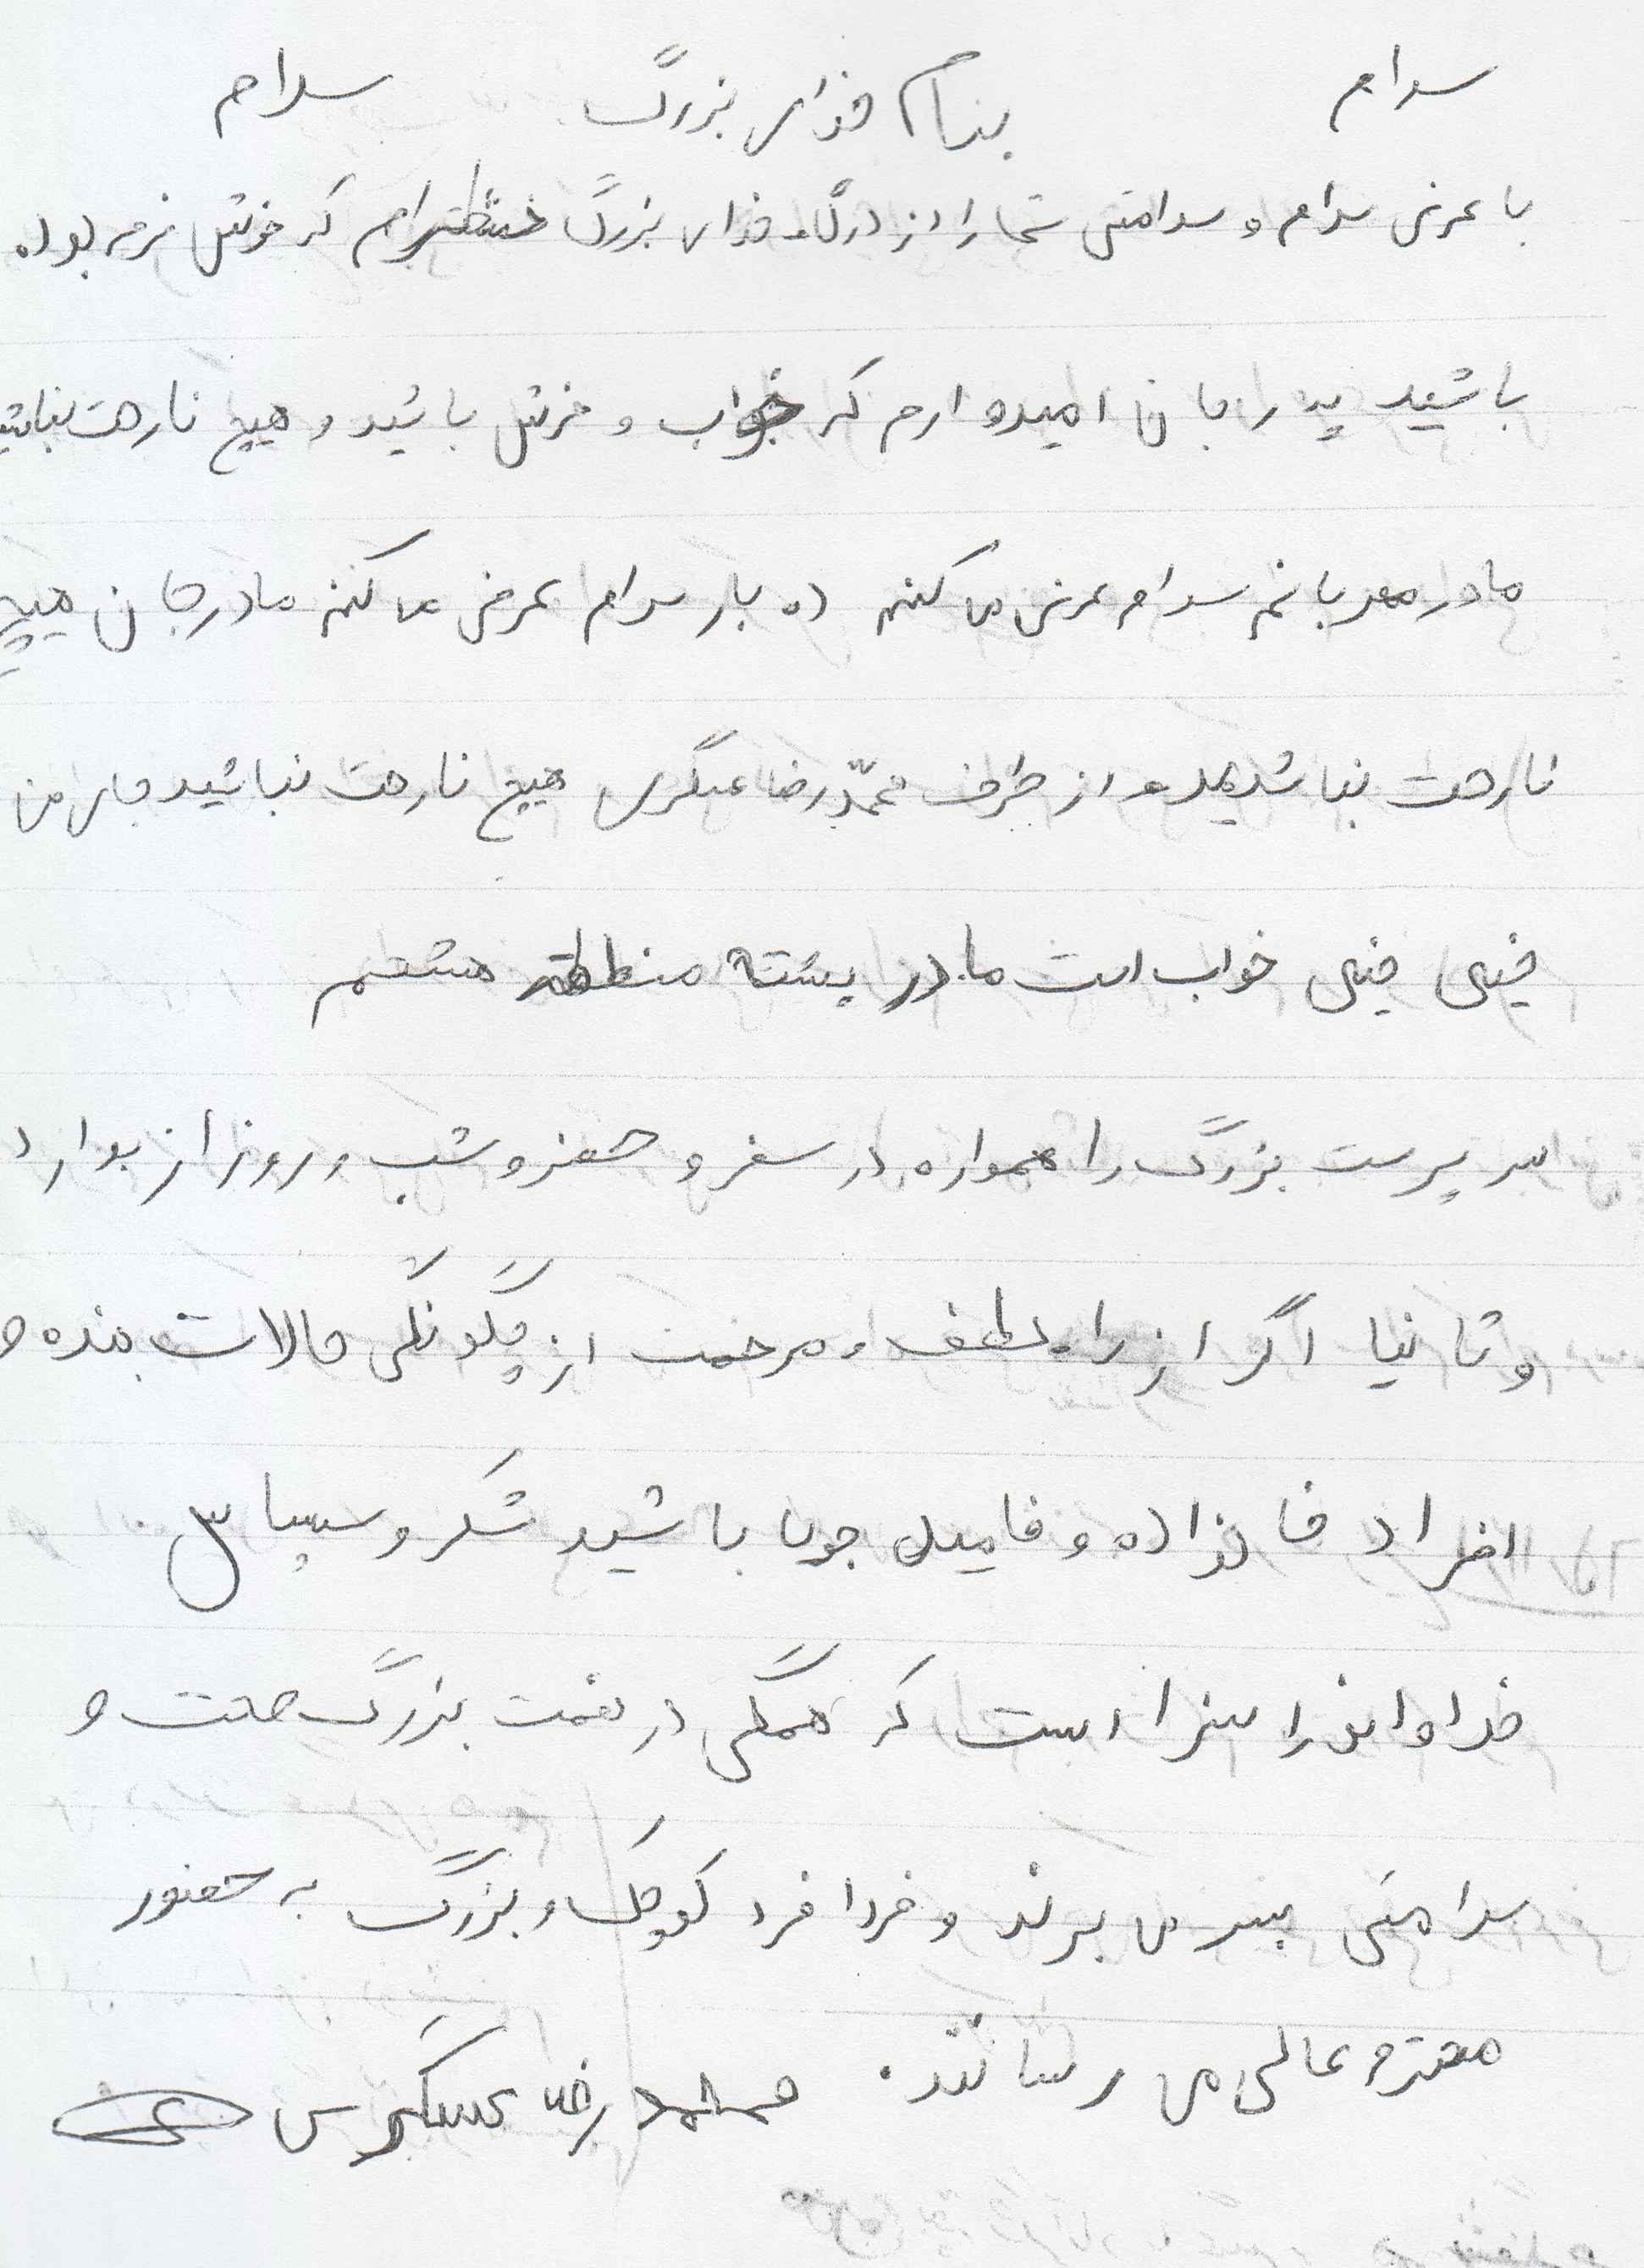 سلام بنام خدای بزرگ سلام
با عرض سلام و سلامتی شما را از درگاه خدای بزرگ که خوش خرم بوده
باشید پدر جان امیدوارم که خواب و خوش باشید و هیچ نارحت نباشید
مادر مهربانم سلام عرض می کنم ده بار سلام عرض می کنم مادر جان هیچ
نارحت نباشد و از طرف محمّد رضا عسگری هیچ نارحت نباشید جای من
خیلی خیلی خواب است ما در پشته منطقه هستم
سر پرست بزرگ را همواره در سفر و حضر و شب و روز از
و ثانیا اگر از راه لطف و مرحمت از چگونگی حالات بنده و
افراد خانواده و فامیل جویا باشید شکر و سپاس
خداوند را سزا است که همگی در نعمت بزرگ صحت و
سلامتی بسر می برند و فردا فرد کوچک و بزرگ به حضور
محترم عالی می رسانند. محمد رضا عسگری